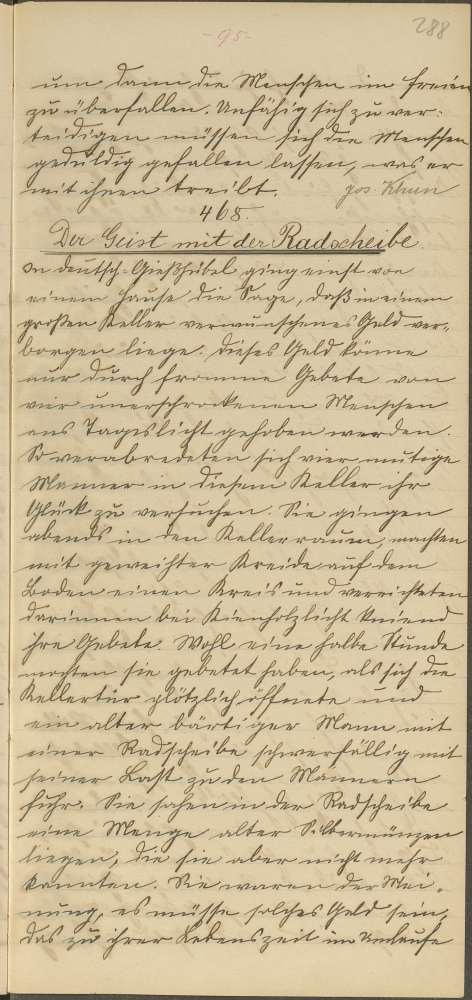 -95-
288
um dann die Menschen im freien
zu überfallen. Unfähig sich zu ver-
teidigen müssen sich die Menschen
geduldig gefallen lassen, was er
mit ihnen treibt. Jos. Khun
468.
Der Geist mit der Radscheibe.
In deutsch-Gießhübel ging einst von
einem Hause die Sage, daß in einem
großen Keller verwunschenes Geld ver-
borgen liege. Dieses Geld könne
nur durch fromme Gebete von
vier unerschrockenen Menschen
ans Tageslicht gehoben werden.
So verabredeten sich vier mutige
Männer in diesem Keller ihr
Glück zu versuchen. Sie gingen
abends in den Kellerraum, machten
mit geweihter Kreide auf dem
Boden einen Kreis und verrichteten
darinnen bei Kienholzlicht kniend
ihre Gebete. Wohl eine halbe Stunde
mochten sie gebetet haben, als sich die
Kellertür plötzlich öffnete und
ein alter bärtiger Mann mit
einer Radscheibe schwerfällig mit
seiner Last zu den Männern
fuhr. Sie sahen in der Radscheibe
eine Menge alter Silbermünzen
liegen, die sie aber nicht mehr
kannten. Sie waren der Mei-
nung, es müsse solches Geld sein,
das zu ihrer Lebenszeit im Umlaufe